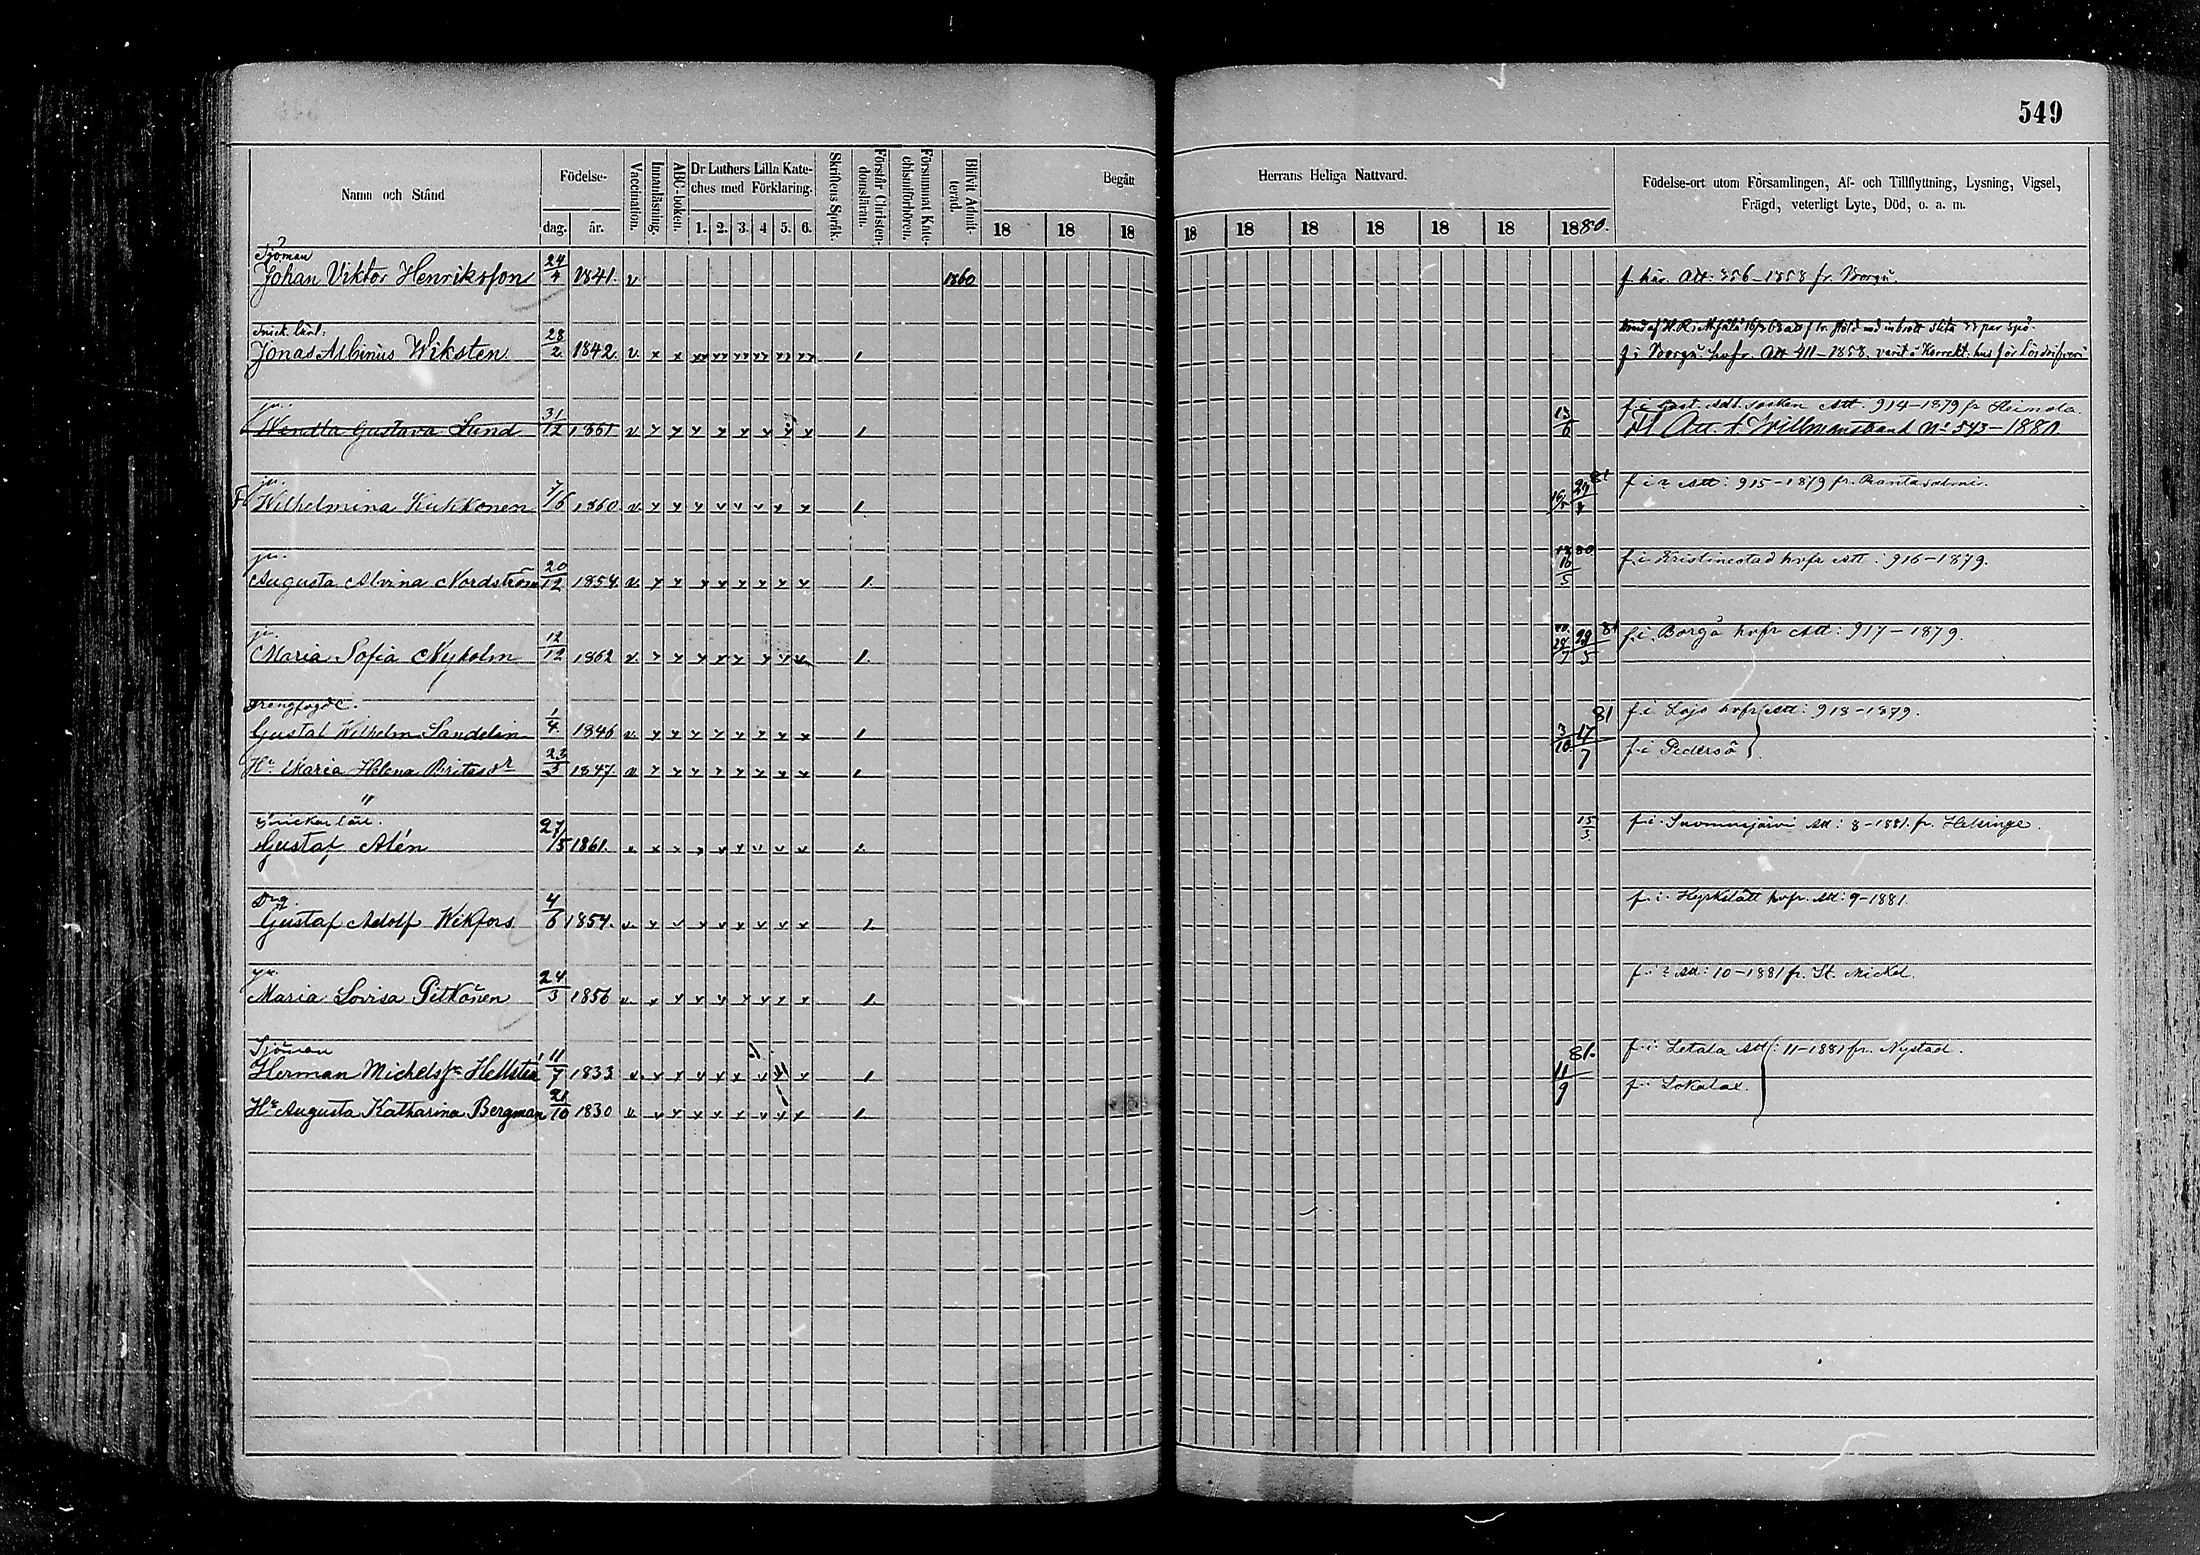 549
Namn och Stånd
Födelse-
dag.
år.
Vaccination.
Innanläsning.
ABC-boken.
Dr Luthers Lilla Kate-
ches med Förklaring.
1. 2. 3. 4 5. 6.
Skriftens Språk.
Förstår Christen-
domsläran.
Försummat Kate-
chismiförhören.
Blifvit Admit-
terad.
Begått
Herrans Heliga Nattvard.
18 18 18 18 18 18 18 18 18 1880.
Födelse-ort utom Församlingen, Af- och Tillflyttning, Lysning, Vigsel,
Frägd, veterligt Lyte, Död, o. a. m.
Sjöman
Johan Viktor Henriksson 24/4 1841. v 1860 f. här. Att: 356-1858 fr. Borgå.
Snick. lärl:
Jonas Albinus Wiksten 28/2 1842. v. x x 1.
f. i Borgå hvfr. Att 411-1858. varit å Korrekt. hus för lösdrifveri
pi. f. i socken Att: 914-1879 fr Heinola.
Wendla Gustava Sund 31/12 1861 v 1. 13/6 Att. t. Willmanstrand No 543-1880
pi. 81 f. i ? Att: 915-1879 fr. Rantasalmi.
Wilhelmina Kukkonen 7/6 1860. v. 1.
pi. 80 f. i Kristinestad hvfr Att: 916-1879.
Augusta Alvina Nordström 20/12 1854 v. 1. 16/5
pi. 81 f. i Borgå hvfr Att: 917-1879.
Maria Sofia Nyholm 12/12 1862 v. 1. 29/5
Drengfogde. 81 f. i Lojo hvfr Att: 918-1879.
Gustaf Wilhelm Sandelin 1/4 1846 v. 1. 3/10 17/7 f. i Pedersö
Hu Maria Helena Britasdr 23/3 1847. v. 1.
"
Snickar lärl. 15/3 f. i Att: 8-1881. fr. Helsinge.
Gustaf Alén 27/5 1861. 1.
Drg. f. i Kyrkslätt hvfr. Att: 9-1881.
Gustaf Adolf Wikfors 4/6 1854. v. 1.
pi. f. i ? Att: 10-1881 fr. St. Mickel.
Maria Lovisa Pitkönen 24/3 1856 v. 1.
Sjöman 81. f. i Letala Att: 11-1881 fr. Nystad.
Herman Michelsson Hellstén 11/7 1833 v. 1 11/9 f. i Lokalax.
Hu Augusta Katharina Bergman 21/10 1830 v 1.